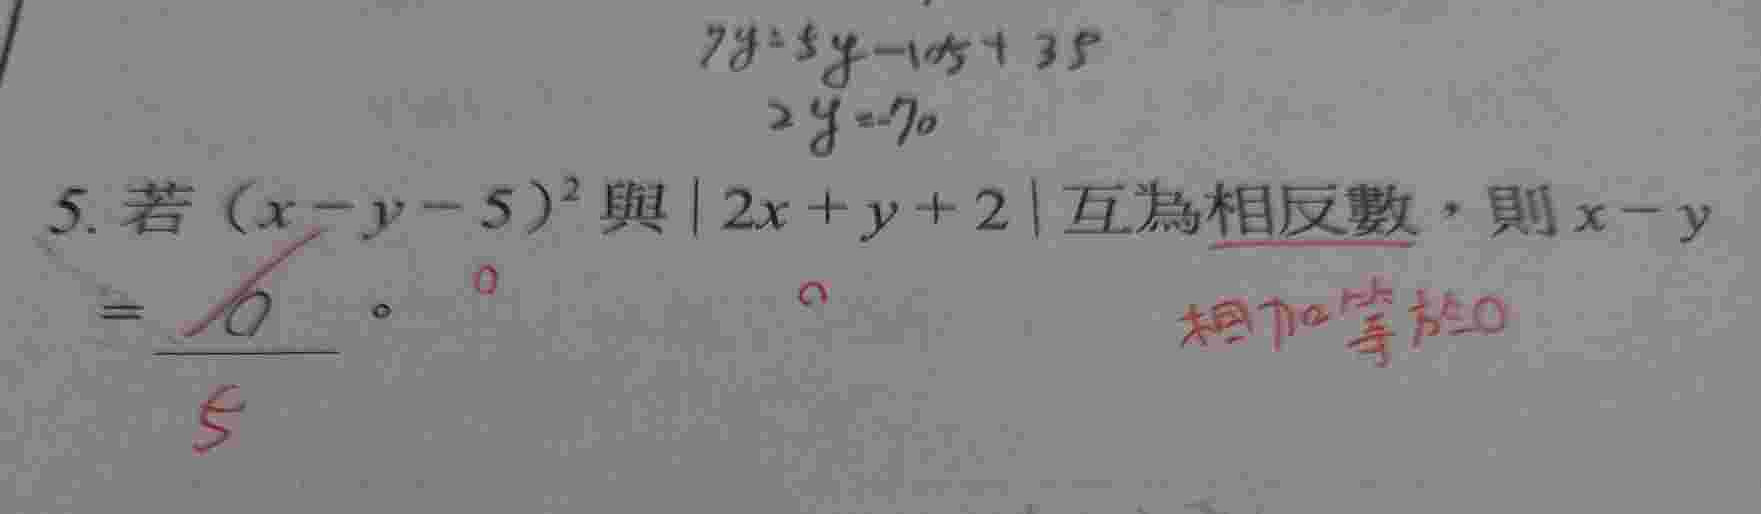 7y=5y-105+35
2y=-70
5. 若 (x-y-5)² 與 | 2x+y+2 | 互為相反數，則 x-y
= 0 。 0 0 相加等於0
5